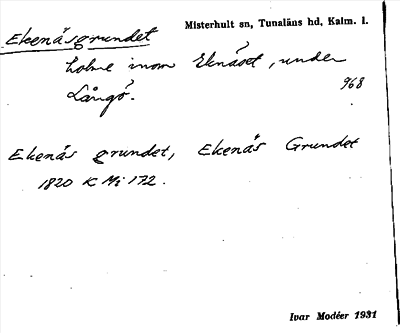 Ekenäsgrundet
Misterhult sn, Tunaläns hd, Kalm. l.
holme inom Eknäset, under
Långö.
968
Ekenäs grundet, Ekenäs Grundet
1820 K Mi 172.
Ivar Modéer 1931